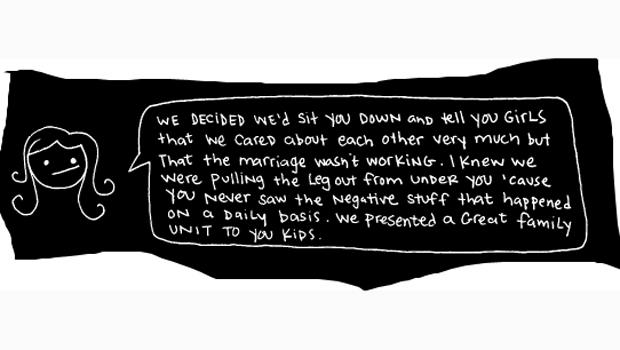 WE DECIDED WE'D SIT YOU DOWN AND tell YOU GIRLS
that we CARED about each other very much but
That the marriage wasn't WORKING. I KNEW WE
WERE PULLING the Leg out from UNDER YOU 'cause
YOU NEVER SAW the NEGATIVE STUFF that happened
ON a DAILY basis. WE PRESENTED a Great family
UNIT TO YOU KIDS.